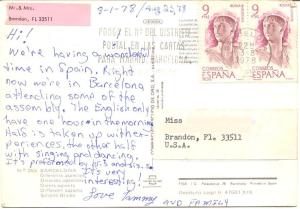 Mr. & Mrs.
Brandon, FL 33511
8-1-78 / Aug 22, 78
Hi!
We're having a wonderful
time in Spain. Right
now we're in Barcelona
attending some of the
assembly. The English only
have one hour in the morning
Half is taken up with ex-
periences, the other half
with singing and dancing.
It's
very
interesting!
Love Tammy AND FAMILY
PONGA EL Nº DEL DISTRITO
POSTAL EN LAS CARTAS
PARA MADRID BARCELONA
9 PTAS
ESPAÑA
9 PTAS
ESPAÑA
Miss
Brandon, Fl. 33511
U.S.A.
BARCELONA